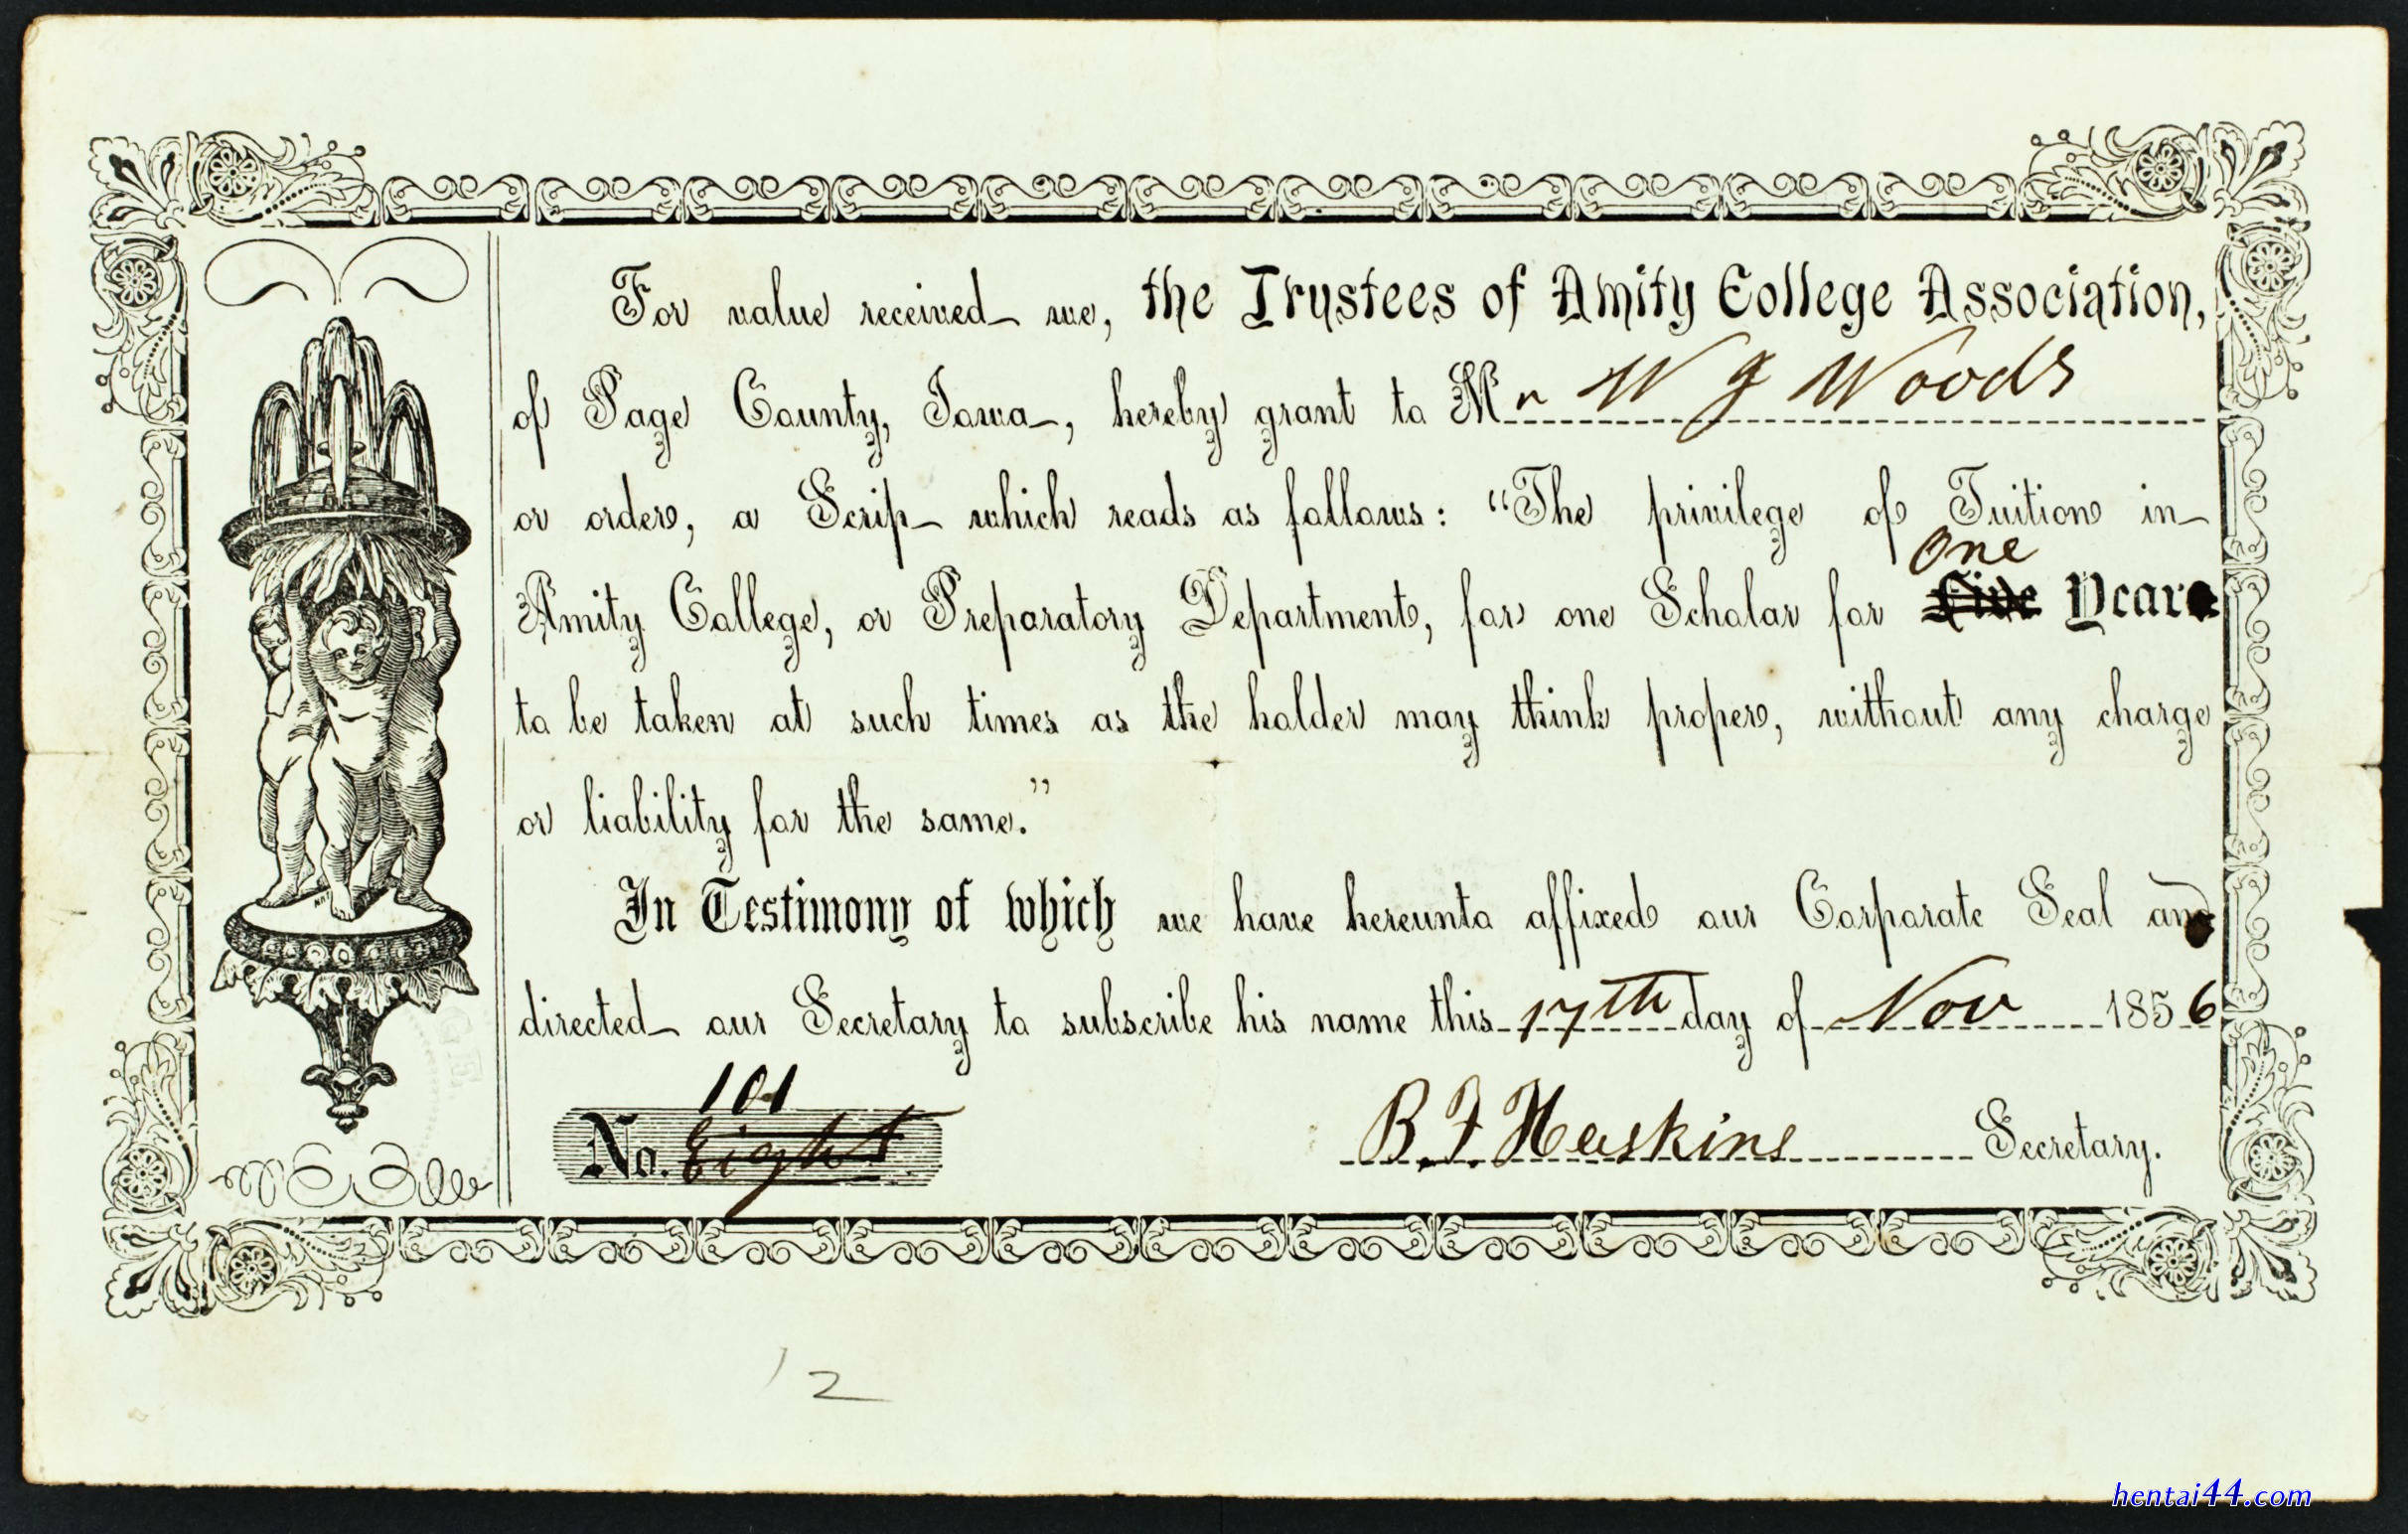 For value received we, the Trustees of Amity College Association,
of Page County, Iowa, hereby grant to Mr W J Woods
or order, a Scrip which reads as follows: "The privilege of Tuition in
One
Amity College, or Preparatory Department, for one Scholar for Five Year
to be taken at such times as the holder may think proper, without any charge
or liability for the same."
In Testimony of which we have hereunto affixed our Corporate Seal and
directed our Secretary to subscribe his name this 17th day of Nov 1856
101
No. Eight
B. F. Haskins Secretary.
12
hentai44.com